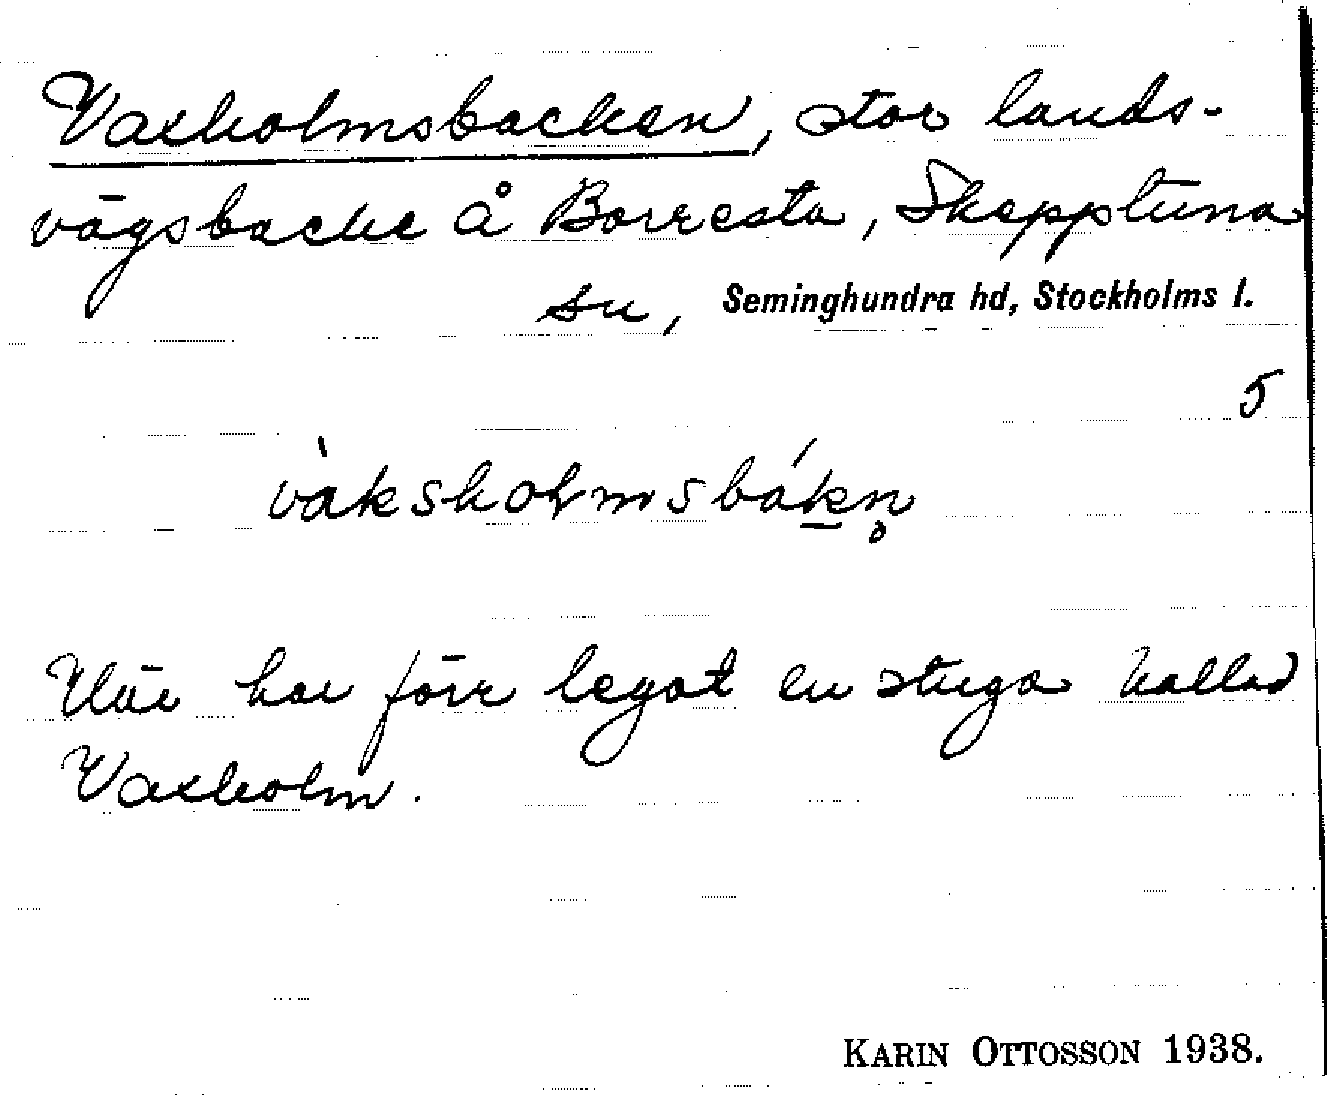 Vaxholmsbacken, stor lands-
vägsbacke å Borresta, Skepptuna
sn, Seminghundra hd, Stockholms l.
5
vàksholmsbákn̥
Här har förr legat en stuga kallad
Vaxholm.
KARIN OTTOSSON 1938.